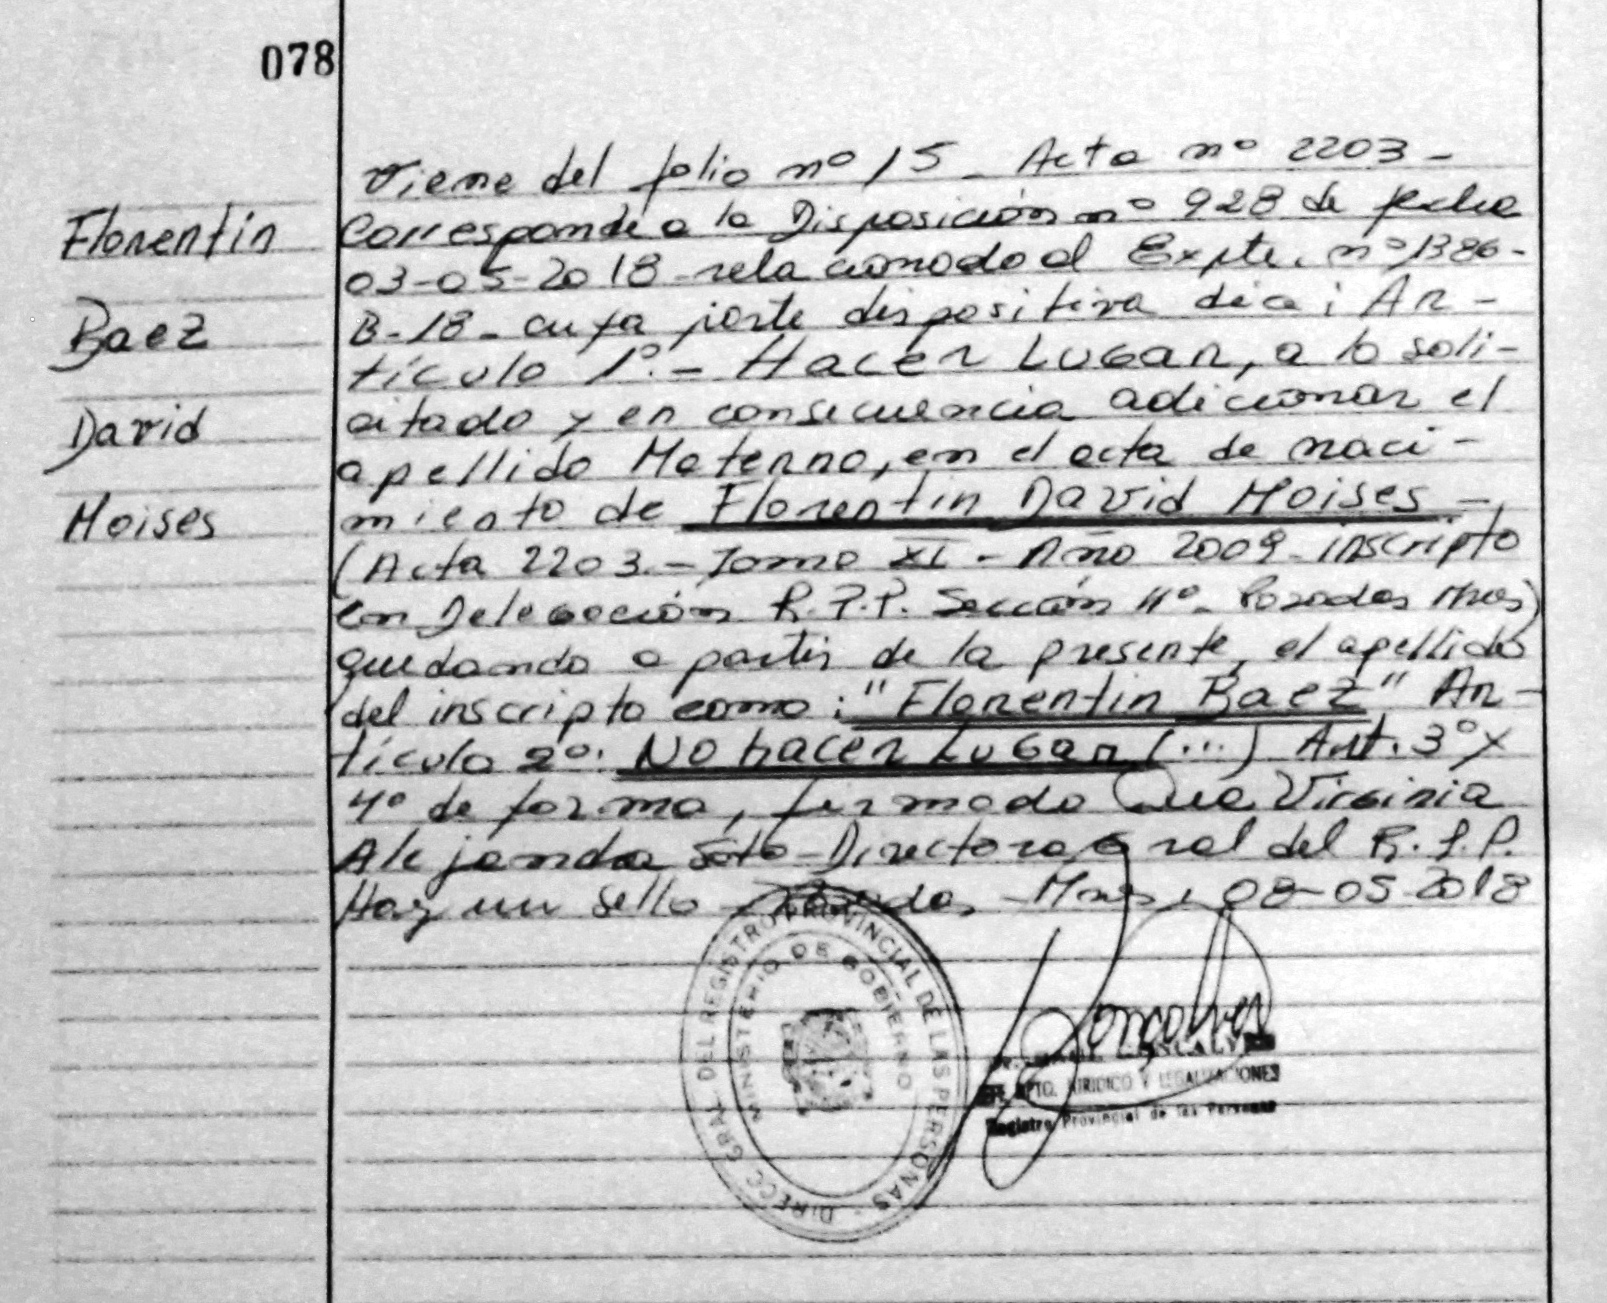 078
Florentin
Baez
David
Moises
Viene del folio nº 15 - Acta nº 2203 -
Corresponde a la Disposición nº 928 de fecha
03-05-2018 - relacionado al Expte. nº 1386-
B-18 - cuya parte dispositiva dice: Ar-
tículo 1º.- Hacer Lugar, a lo soli-
citado y en consecuencia adicionar el
apellido Materno, en el acta de naci-
miento de Florentin David Moises -
(Acta 2203 - Tomo XI - Año 2009 - inscripto
en Delegación R.P.P. Sección 4º - Posadas Mnes)
quedando a partir de la presente, el apellido
del inscripto como: "Florentin Baez" Ar-
tículo 2º: No hacer Lugar (...) Art. 3º y
4º de forma, firmado Virginia
Alejandra Soto - Directora Gral del R.P.P.
Hay un sello - Posadas, Mnes, 08-05-2018
DIRECC. GRAL. DEL REGISTRO PROVINCIAL DE LAS PERSONAS -
MINISTERIO DE GOBIERNO
Goncalves
DPTO. JURIDICO Y LEGALIZACIONES
Registro Provincial de las Personas